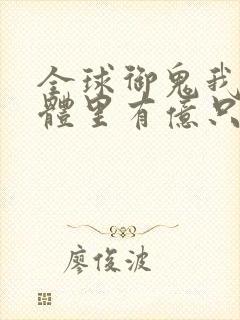 全球御鬼我
體里有億只
廖俊波